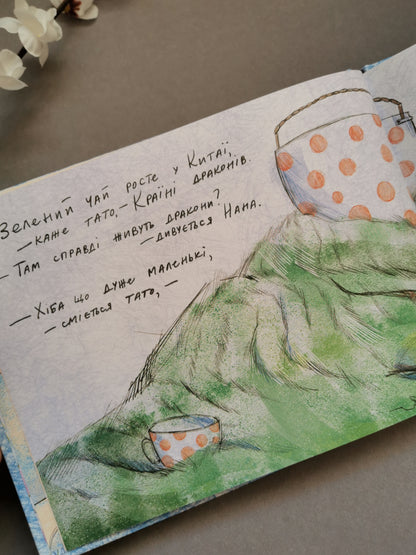 Зелений чай росте у Китаї,
— каже тато, — Країні драконів.
— Там справді живуть дракони?
— дивується Нана.
— Хіба що дуже маленькі,
— сміється тато, —